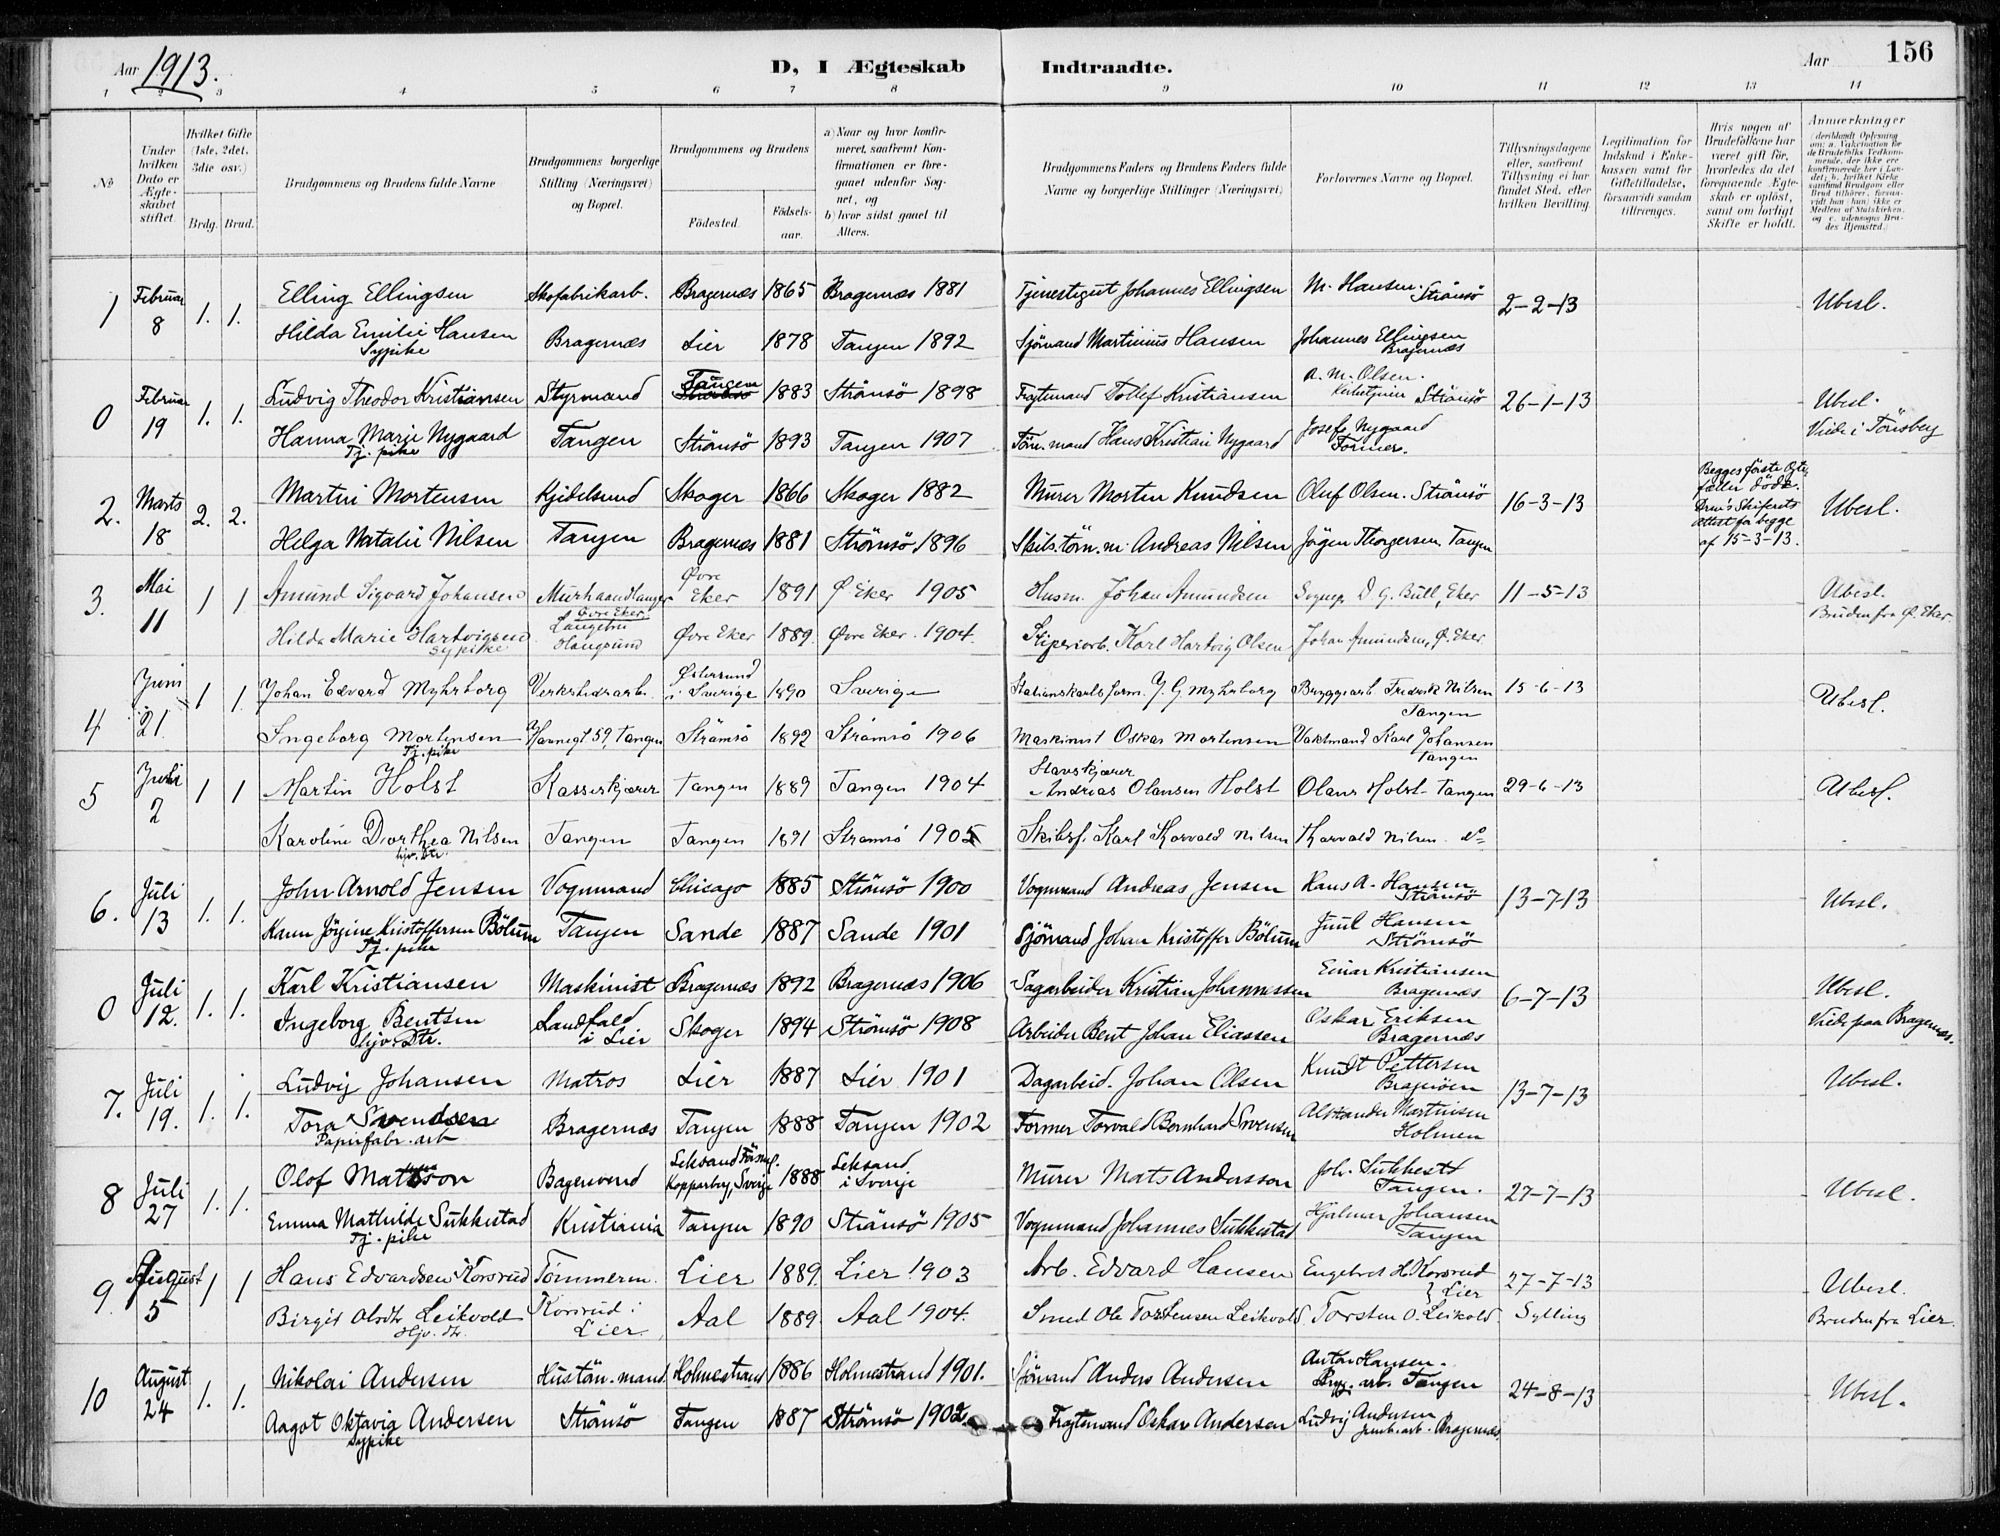 Aar 1913.
D, I Ægteskab Indtraadte.
Aar 156
1 2 3 4 5 6 7 8 9 10 11 12 13 14
No
Under hvilken Dato er Ægteskabet stiftet.
Hvilket Gifte (1ste, 2det, 3die osv.)
Brdg. Brud.
Brudgommens og Brudens fulde Navne
Brudgommens borgerlige Stilling (Næringsvei) og Bopæl.
Brudgommens og Brudens
Fødested.
Fødselsaar.
a) Naar og hvor konfirmeret, saafremt Konfirmationen er foregaaet udenfor Sognet, og
b) hvor sidst gaaet til Alters.
Brudgommens Faders og Brudens Faders fulde Navne og borgerlige Stillinger (Næringsvei)
Forlovernes Navne og Bopæl.
Tillysningsdagene eller, saafremt Tillysning ei har fundet Sted, efter hvilken Bevilling.
Legitimation for Indskud i Enkekassen samt for Giftetilladelse, forsaavidt saadan tiltrænges.
Hvis nogen af Brudefolkene har været gift før, hvorledes da det foregaaende Ægteskab er opløst, samt om lovligt Skifte er holdt.
Anmærkninger
(deriblandt Oplysning om: a. Vakcination for de Brudefolks Vedkommende, der ikke ere konfirmerede her i Landet; b. hvilket Kirkesamfund Brudgom eller Brud tilhører, forsaavidt han (hun) ikke er Medlem af Statskirken, og c. udensogns Brudes Hjemsted.)
1 Februar 8 1. 1. Elling Ellingsen Skofabrikarb. Bragernæs 1865 Bragernæs 1881 Tjenestegut Johannes Ellingsen M. Hansen. Strømsö 2-2-13 Ubesl.
Hilda Emilie Hansen Sypike Bragernæs Lier 1878 Tangen 1892 Sjømand Martinius Hansen Johannes Ellingsen Bragernæs
0 Februar 19 1. 1. Ludvig Theodor Kristiansen Styrmand Tangen Strømsö 1883 Strömsö 1898 Fragtemand Tollef Kristiansen A. M. Olsen. Kirketjener Strömsö 26-1-13 Ubesl. Viede i Tönsberg
Hanna Marie Nygaard Tj. pike Tangen Strömsö 1893 Tangen 1907 Töm. mand Hans Kristian Nygaard Josef Nygaard Former.
2. Marts 18 2. 2. Martin Mortensen Kjedelsmed Skoger 1866 Skoger 1882 Murer Morten Knudsen Oluf Olsen. Strömsö 16-3-13 Begges förste Ægtefæller döde. Dram.s Skifterets attest for begge af 15-3-13. Ubesl.
Helga Natalie Nilsen Tangen Bragernæs 1881 Strömsö 1896 Skibs.töm.m. Andreas Nilsen Jörgen Thorgersen. Tangen
3. Mai 11 1 1 Amund Sigvard Johansen Murhaandlanger Övre Eker Øvre Eker 1891 Ø. Eker 1905 Husm. Johan Amundsen Sognep. D. G. Bull, Eker 11-5-13 Ubesl. Bruden fra Ø. Eker.
Hilda Marie Hartvigsen sypike Langebru Hougsund Øvre Eker 1889. Øvre Eker. 1904. Sliperiarb. Karl Hartvig Olsen Johan Amundsen, Ø. Eker
4 Juni 21. 1 1. Johan Edvard Myhrborg Verkstedsarb. Östersund i Sverige 1890 Sverige Stationskarlsform. J. G. Myhrborg Bryggearb Fredrik Nilsen Tangen 15-6-13 Ubesl.
Ingeborg Mortensen Tj. pike Havnegt 59, Tangen Strömsö 1892 Strömsö 1906 Maskinist Oskar Mortensen Vaktmand Karl Johansen Tangen
5 Juli 2 1 1 Martin Holst Kasserkjører Tangen 1889 Tangen 1904 Andreas Olausen Holst Olaus Holst Tangen 29-6-13 Ubesl.
Karoline Dorthea Nilsen hjv. Dtr. Tangen Tangen 1891 Strömsö 1905 Skibsf. Karl Thorvald Nilsen Thorvald Nilsen do
6. Juli 13 1. 1. John Arnold Jensen Vognmand Chicago 1885 Strömsö 1900 Vognmand Andreas Jensen Hans A. Hansen Strömsö 13-7-13 Ubesl.
Karen Jörgine Kristoffersen Bölum Tj. pike Tangen Sande 1887 Sande 1901 Sjömand Johan Kristoffer Bölum Juul Hansen Strömsö
0 Juli 12. 1. 1. Karl Kristiansen Maskinist Bragernæs 1892 Bragernæs 1906 Sagarbeider Kristian Johannessen Einar Kristiansen Bragernæs 6-7-13 Ubesl. Viede paa Bragernæs.
Ingeborg Bentsen hjv. Dtr. Landfald i Lier Skoger 1894 Strömsö 1908 Arbeider Bent Johan Eliassen Oskar Eriksen Bragernæs
7. Juli 19. 1. 1. Ludvig Johansen Matros Lier 1887 Lier 1901 Dagarbeid. Johan Olsen Knudt Pettersen Bragerøen 13-7-13 Ubesl.
Tora Svendsen Papirfabr. arb Bragernæs Tangen 1888 Tangen 1902 Former Torvald Bernhard Svensen Alexander Martinsen Holmen
8 Juli 27 1. 1. Olof Matsson Bagersvend Leksand Kopparberg, Sverige 1888 Leksand i Sverige Murer Mats Andersson Joh. Sukkestd Tangen. 27-7-13 Ubesl.
Emma Mathilde Sukkestad Tj. pike Kristiania Tangen 1890 Strömsö 1905 Vognmand Johannes Sukkestad Hjalmar Johansen Tangen
9. August 5 1 1 Hans Edvardsen Korsrud Tømmerm. Lier 1889. Lier 1903 Arb. Edvard Hansen Engebret H. Korsrud Lier 27-7-13 Ubesl.
Birgit Olsdtr Leikvold Hjv. dtr. Korsrud i Lier. Aal 1889. Aal 1904. Smed Ole Torstensen Leikvold. Torsten O. Leikvold. Sylling Bruden fra Lier.
10 August 24 1. 1. Nikolai Andersen Hustöm.mand. Holmestrand 1886 Holmestrand 1901. Sjömand Anders Andersen Anton Hansen. Bryg. arb. Tangen 24-8-13 Ubesl.
Aagot Oktavia Andersen Sypike Strömsö Tangen 1887 Strömsö 1902 Fragtemand Oskar Andersen Ludvig Andersen Bragernæs.